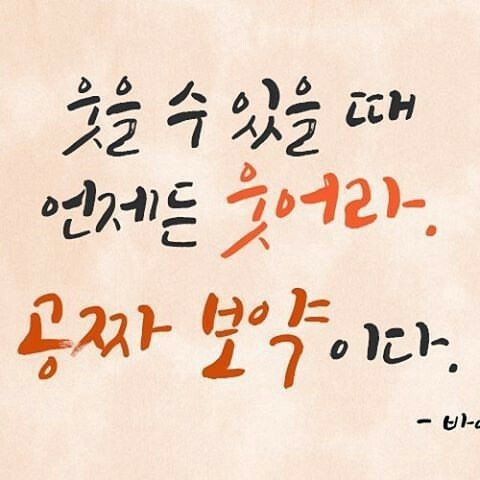 웃을 수 있을 때
언제든 웃어라.
공짜 보약이다.